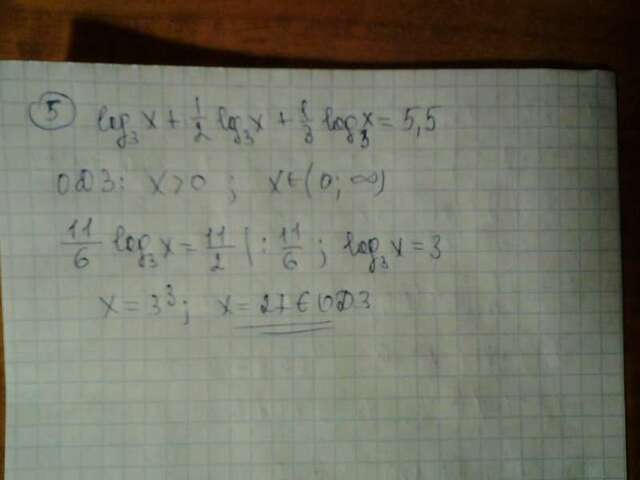 5 log₃x + 1/2 log₃x + 1/3 log₃x = 5,5
ОДЗ: x>0 ; x∈(0; ∞)
11/6 log₃x = 11/2 | : 11/6 ; log₃x = 3
x = 3³ ; x = 27 ∈ ОДЗ